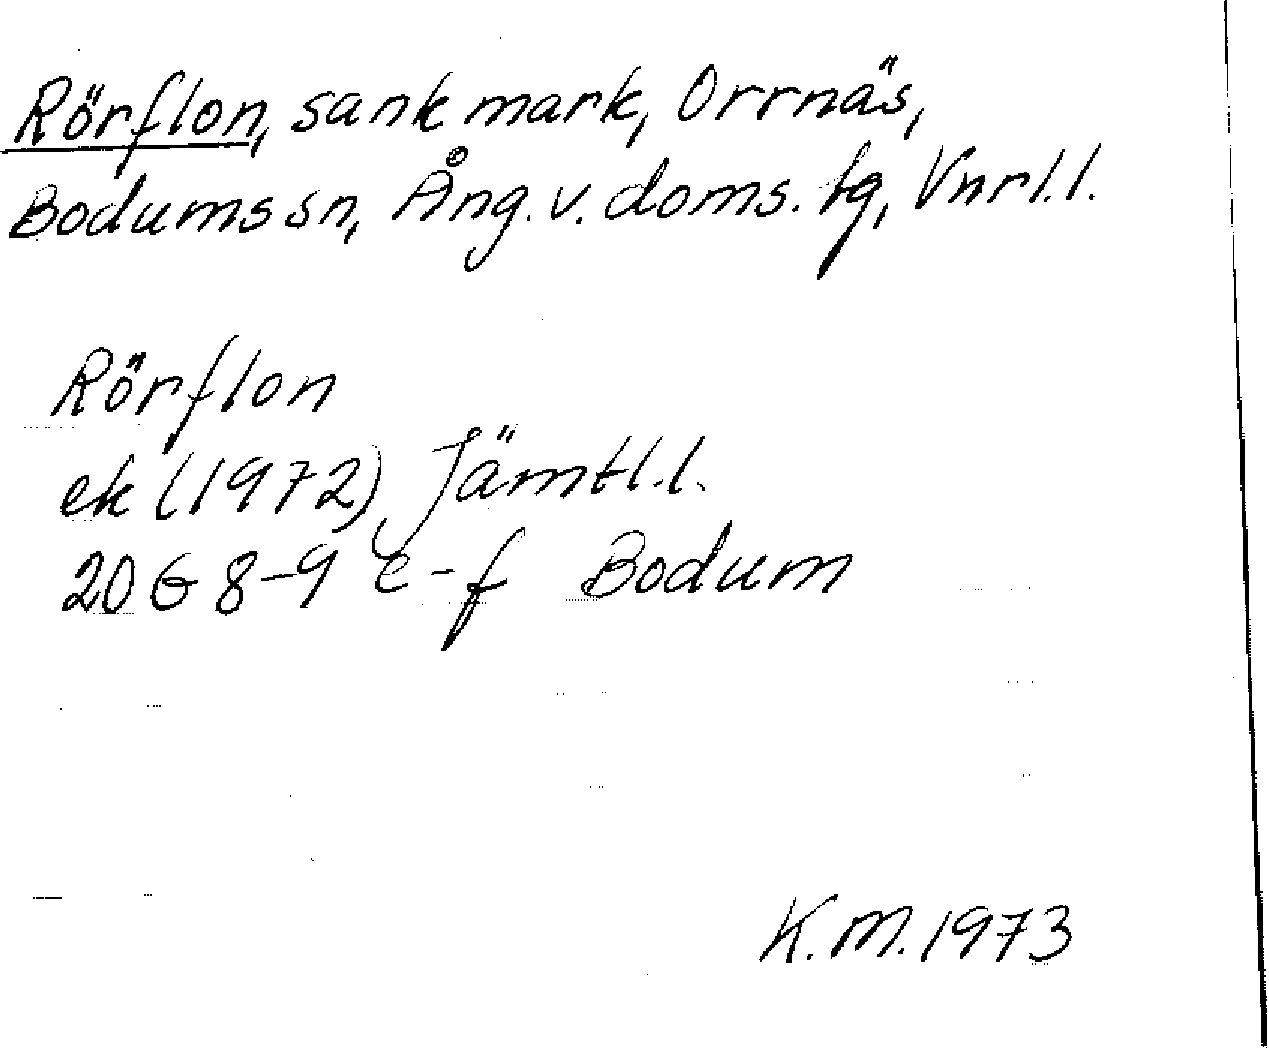 Rörflon, sank mark, Orrnäs,
Bodums sn, Ång. v. doms. tg, Vnrl. l.
Rörflon
ek (1972) Jämtl. l.
20 G 8-9 e-f Bodum
K. M. 1973